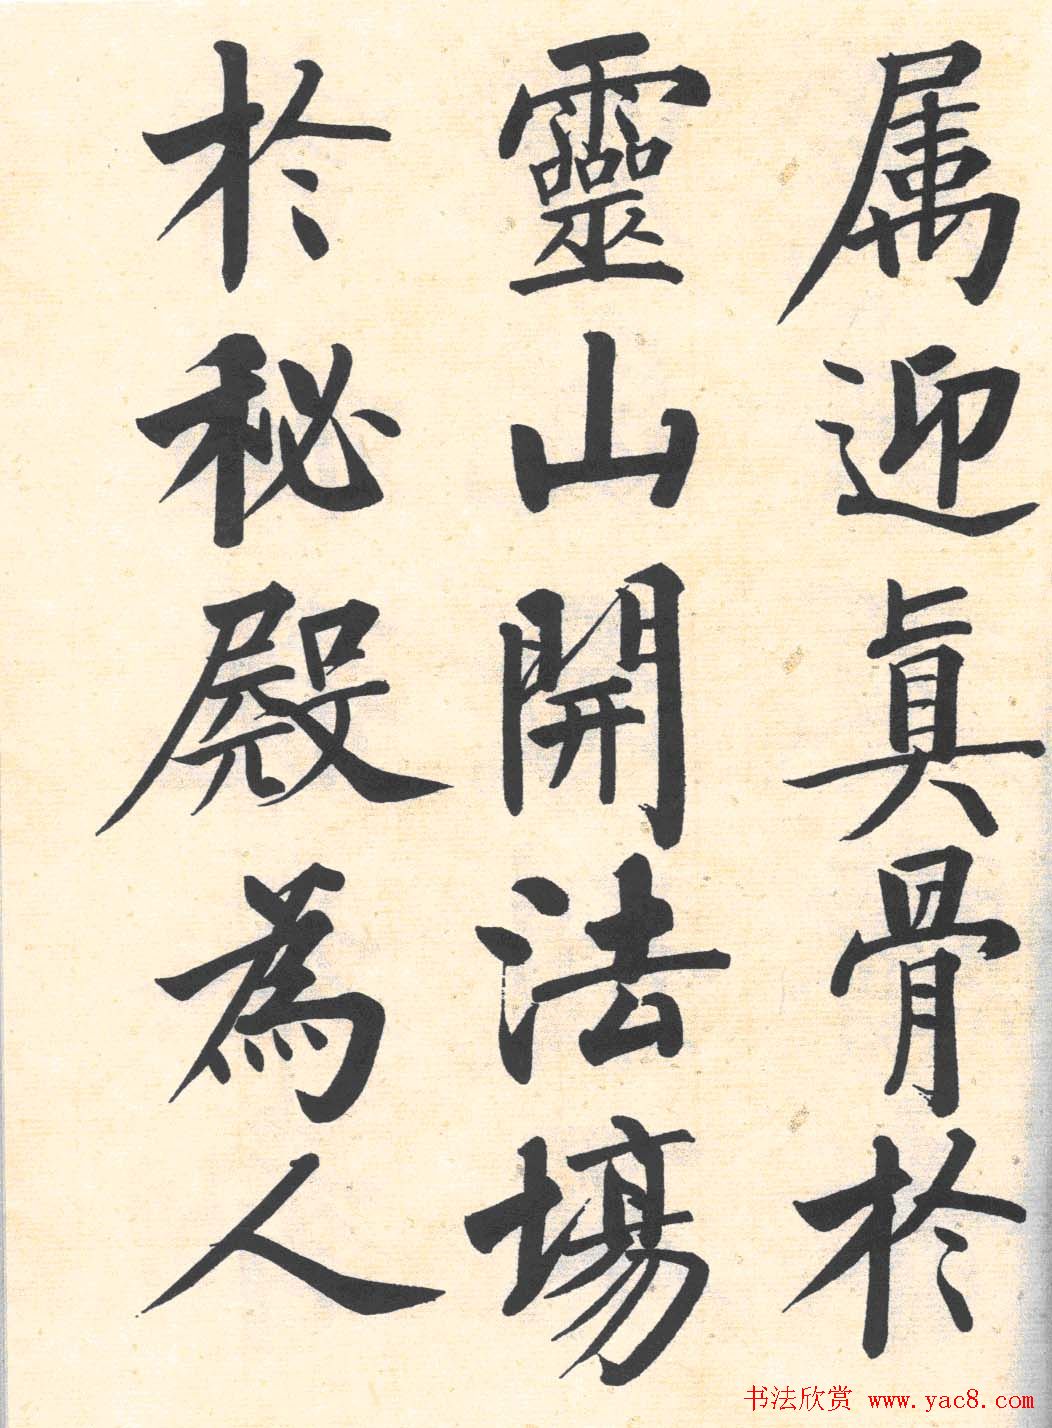 属迎真骨於
靈山開法場
於秘殿為人
书法欣赏 www.yac8.com